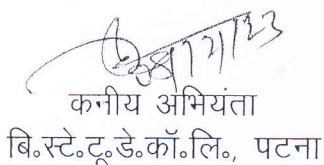 कनीय अभियंता
बि.स्टे.टू.डे.कॉ.लि., पटना